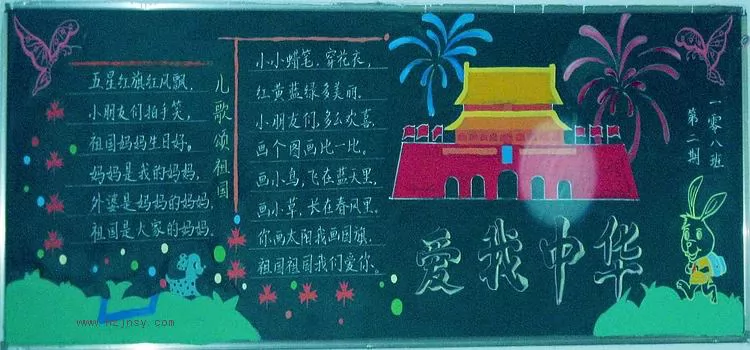 五星红旗红风飘,
小朋友们拍手笑,
祖国妈妈生日好。
妈妈是我的妈妈,
外婆是妈妈的妈妈,
祖国是大家的妈妈.
儿歌颂祖国
小小蜡笔.穿花衣,
红黄蓝绿多美丽.
小朋友们,多么欢喜
画个图画比一比。
画小鸟,飞在蓝天里,
画小草.长在春风里.
你画太阳我画国旗.
祖国祖国我们爱你。
爱我中华
一零八班
第二期
www.nzjnsy.com